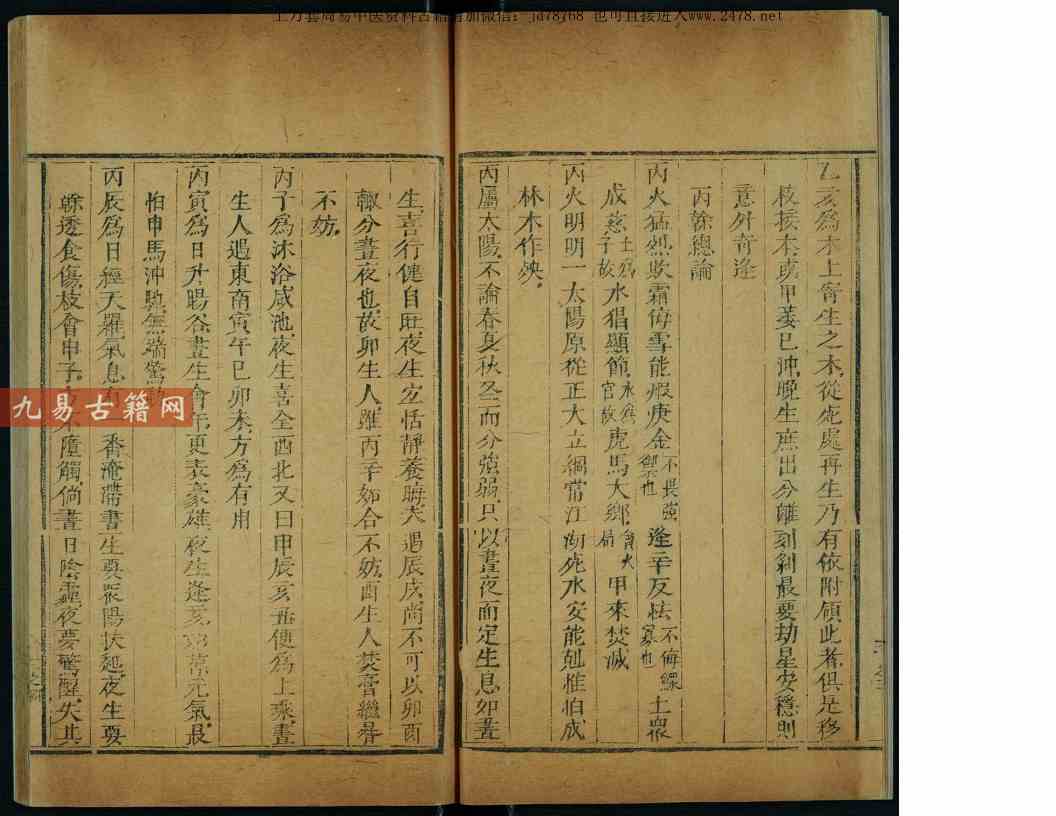 上万套周易中医资料古籍请加微信：jd78768 也可直接进入www.2478.net
乙亥為木上寄生之木，從死處再生乃有依附傾此者俱是移
枝接木，或甲萎巳沖，晚生庶出分離刻剝最要劫星安穩則
意外奇逢
丙榦總論
丙火猛烈欺霜侮雪能煅庚金不畏強禦也逢辛反怯不侮鰥寡也土衆
成慈土為子故水猖顯節水為官故虎馬犬鄉會火局甲來焚滅
丙火明明一太陽原從正大立綱常江湖死水安能剋惟怕成
林木作殃。
丙屬太陽，不論春夏秋冬而分強弱，只以晝夜而定生息如晝
生，喜行健自旺，夜生宜恬靜養晦，大遇辰戌尚不可以卯酉
輒分晝夜也，故卯生人，雖丙辛妬合不妨，酉生人焚膏繼晷
不妨，
丙子為沐浴咸池，夜生喜全酉北又曰甲辰亥丑便為上乘，晝
生人遇東南寅午巳卯未，方為有用
丙寅為日升暘谷晝生會午更表豪雄，夜生逢亥元氣，最
怕申馬沖馳，無端驚
丙辰為日經天羅氣息香淹滯晝生要眾陽扶起，夜生要
榦透食傷，枝會申子，不墮觸，倘晝日陰霾，夜夢驚醒，失其
九易古籍网